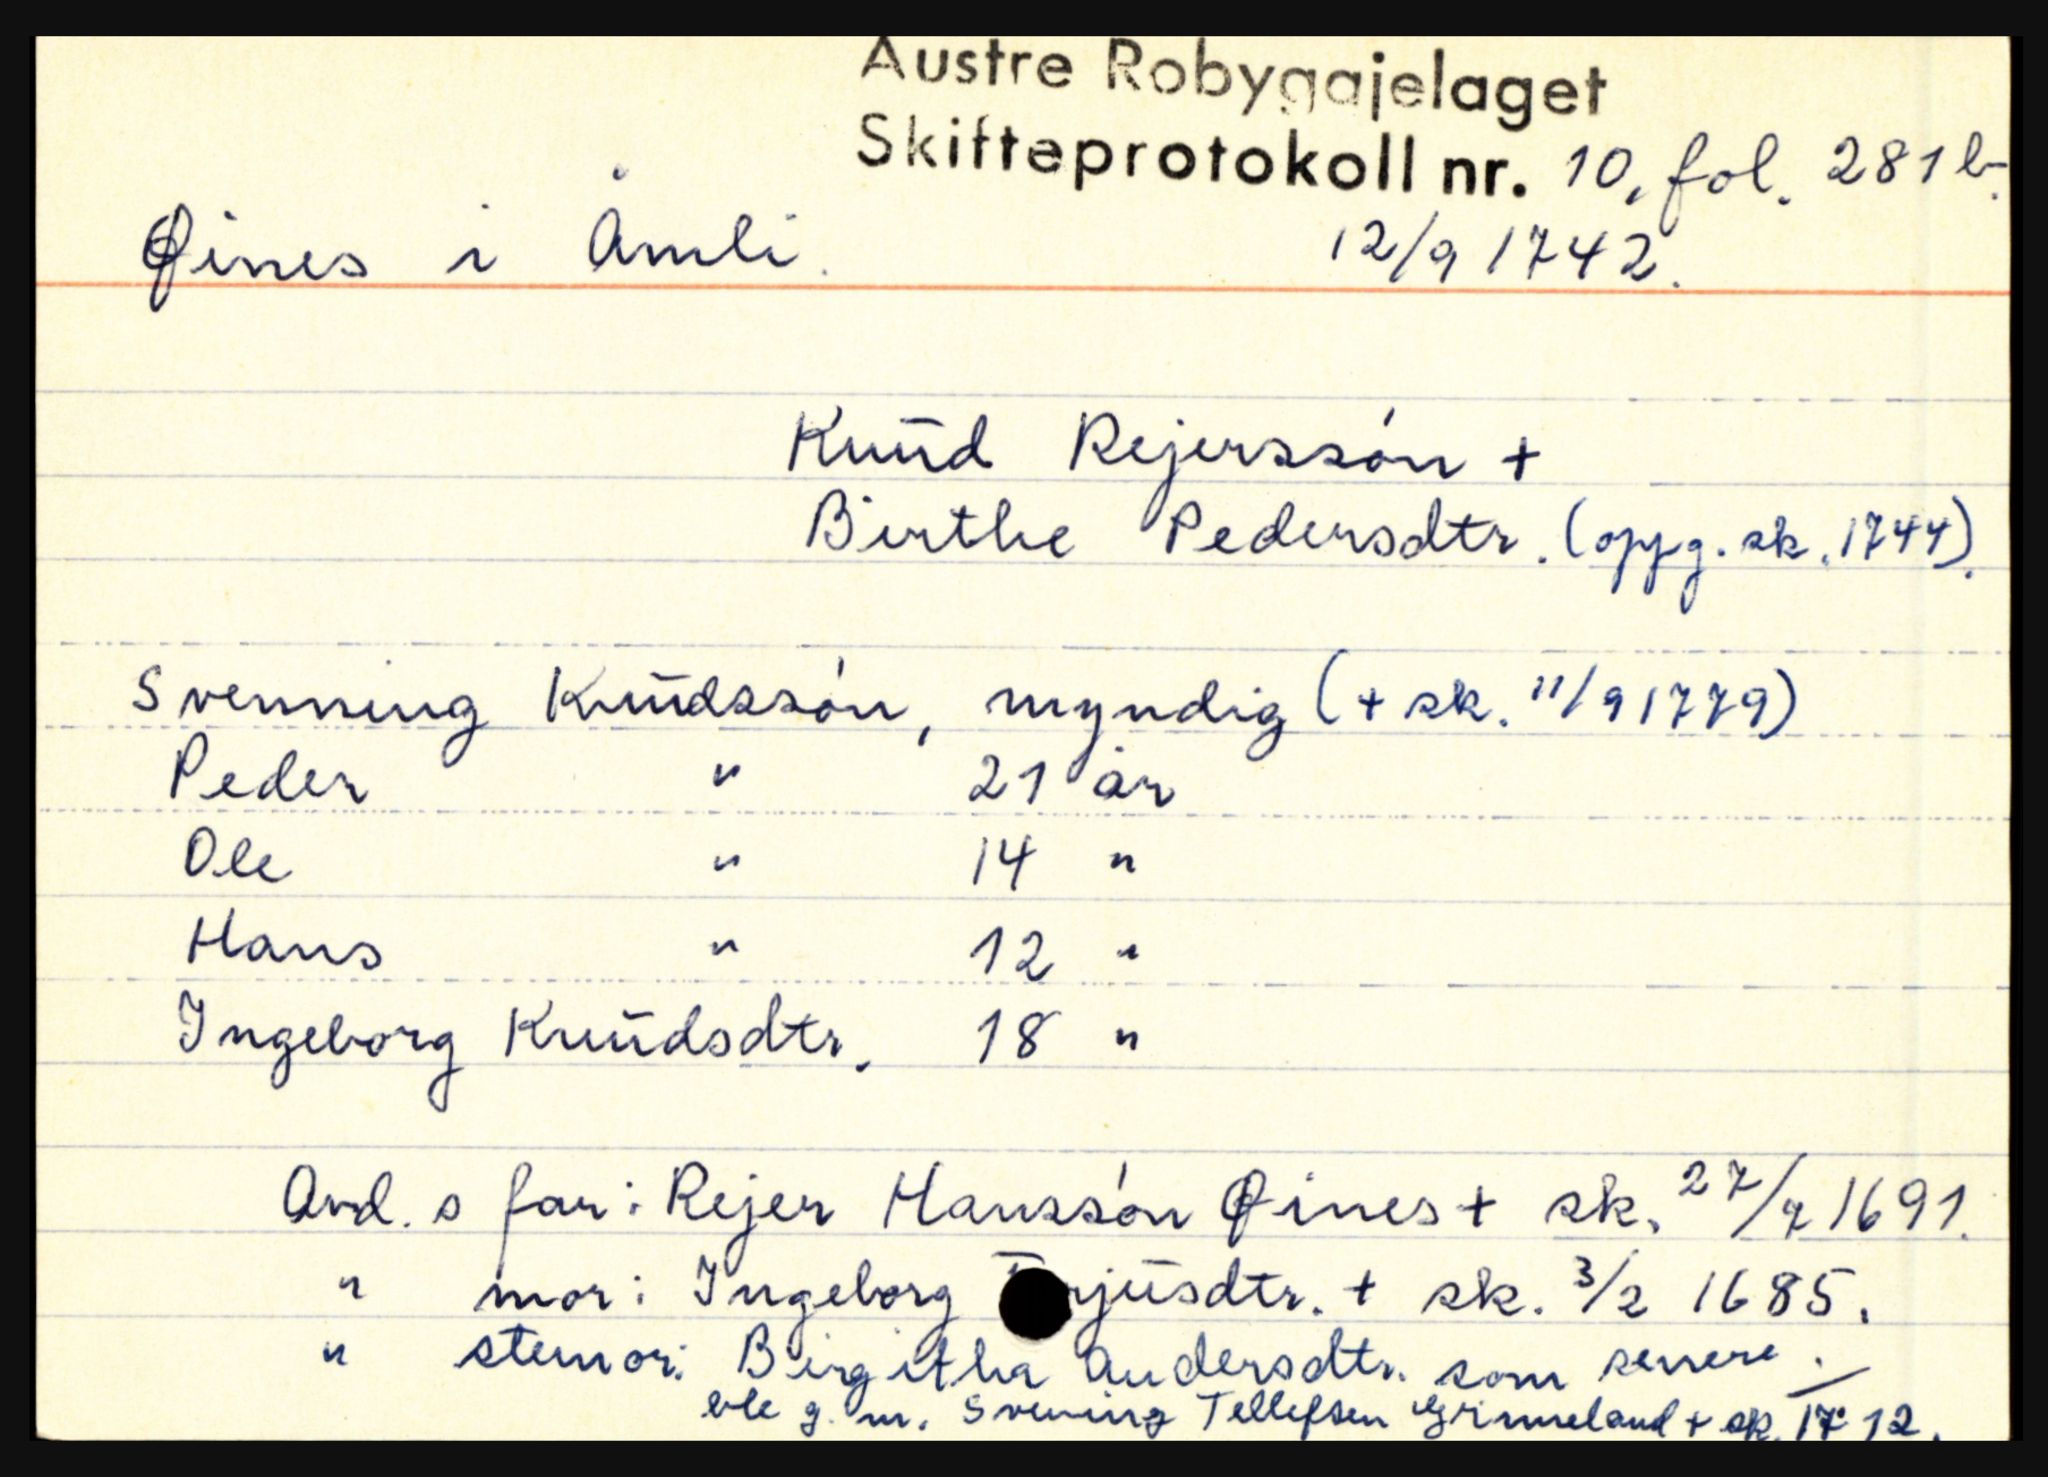 Austre Robygdelaget
Skifteprotokoll nr. 10, fol. 281 b.
Øines i Åmli. 12/9 1742.
Knŭd Rejerssón +
Birthe Pedersdtr. (oppg. sk. 1744).
Svenning Knŭdssón, myndig (+ sk. 11/9 1779)
Peder " 21 år
Ole " 14 "
Hans " 12 "
Ingeborg Knŭdsdtr. 18 "
Avd. s far: Rejer Hanssón Øines + sk. 27/7 1691.
" mor: Ingeborg jŭsdtr. + sk. 3/2 1685.
" stemor: Birgitha Andersdtr. som senere
ble g. m. Svening Tellefsen Grimeland + sk. 1712.